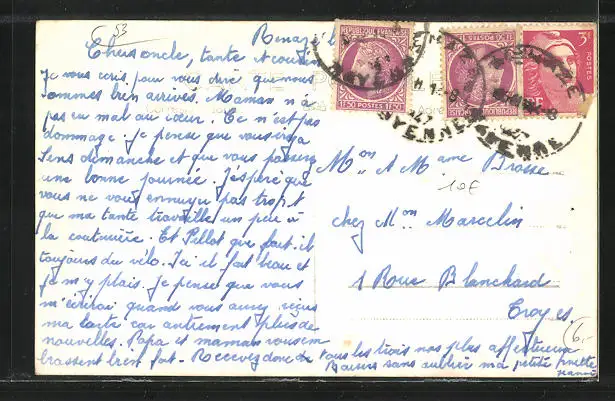 53
Chers oncle, tante et cousin
Je vous écris pour vous dire que nous
sommes bien arrivés. Maman n'a
pas eu mal au cœur. Ce n'est pas
dommage. Je pense que vous
dimanche et que vous
une bonne journée. J'espère que
vous ne vous ennuyez pas trop et
que ma tante travaille un peu à
la couturière. Et Pellot que fait-il
toujours du vélo. Ici il fait beau et
je m'y plais. Je pense que vous
m'écrirai quand vous aurez
ma carte car autrement plus de
nouvelles. Papa et maman vous em
brassent bien fort. Recevez donc de tous les trois nos plus affectueux
Baisers sans oublier ma petite
REPUBLIQUE FRANCAISE
1F50 POSTES 1F50
3F
POSTES
RF
MAYENNE
Mon. A Mme Brosse
10€
chez Mon. Marcelin
1 Rue Blanchard
Troyes.
6.-